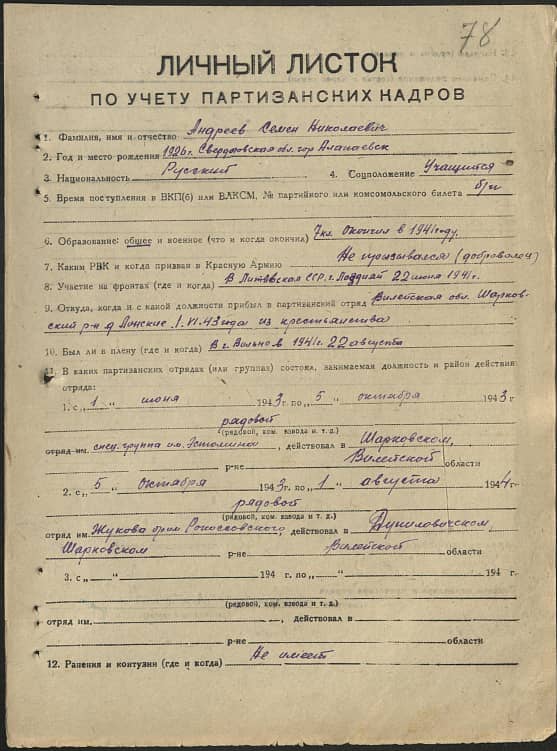 78
ЛИЧНЫЙ ЛИСТОК
ПО УЧЕТУ ПАРТИЗАНСКИХ КАДРОВ
1. Фамилия, имя и отчество Андреев Семен Николаевич
2. Год и место рождения 1926 г. Свердловская обл. гор Алапаевск
3. Национальность Русский 4. Соцположение Учащийся
5. Время поступления в ВКП(б) или ВЛКСМ, № партийного или комсомольского билета б/п
6. Образование: общее и военное (что и когда окончил) 7 кл. Окончил в 1941 году.
7. Каким РВК и когда призван в Красную Армию Не призывался (доброволец)
8. Участие на фронтах (где и когда) В ССР, г. 22 июня 1941 г.
9. Откуда, когда и с какой должности прибыл в партизанский отряд Вилейская обл. Шарков-
ский р-н д. 1. VI. 43 года из крестьянства
10. Был ли в плену (где и когда) В г. Вильно в 1941 г. 22 августа
11. В каких партизанских отрядах (или группах) состоял, занимаемая должность и район действия
отряда:
1. с „1“ июня 1943 г. по „5“ октября 1943 г
рядовой
(рядовой, ком. взвода и т. д.)
отряд им. спец. группа им. , действовал в Шарковском,
р-не Вилейской области
2. с „5“ октября 1943 г. по „1“ августа 1944 г.
рядовой
(рядовой, ком. взвода и т. д.)
отряд им. Жукова Рокосовского, действовал в Дуниловичском,
Шарковском р-не Вилейской области
3. с „ “ 194 г. по „ “ 194 г.
(рядовой, ком. взвода и т. д.)
отряд им. , действовал в
р-не области
12. Ранения и контузии (где и когда) Не имеет